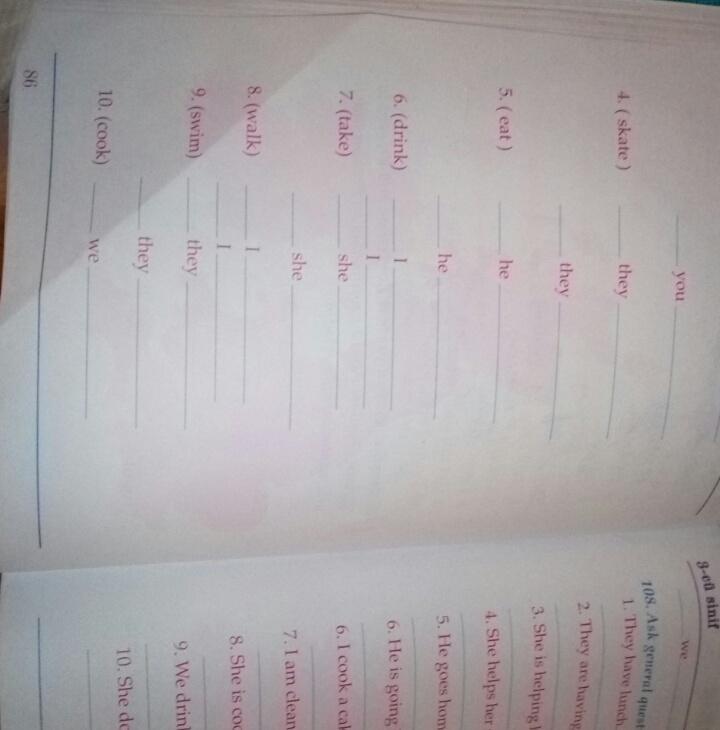 ____ you ________
4. ( skate ) ____ they ________
____ they ________
5. ( eat ) ____ he ________
____ he ________
6. (drink) ____ I ________
____ I ________
7. (take) ____ she ________
____ she ________
8. (walk) ____ I ________
____ I ________
9. (swim) ____ they ________
____ they ________
10. (cook) ____ we ________
86
3-cü sinif
____ we
108. Ask general quest
1. They have lunch.
2. They are having
3. She is helping
4. She helps her
5. He goes hom
6. He is going
6. I cook a ca
7. I am clean
8. She is coo
9. We drin
10. She do